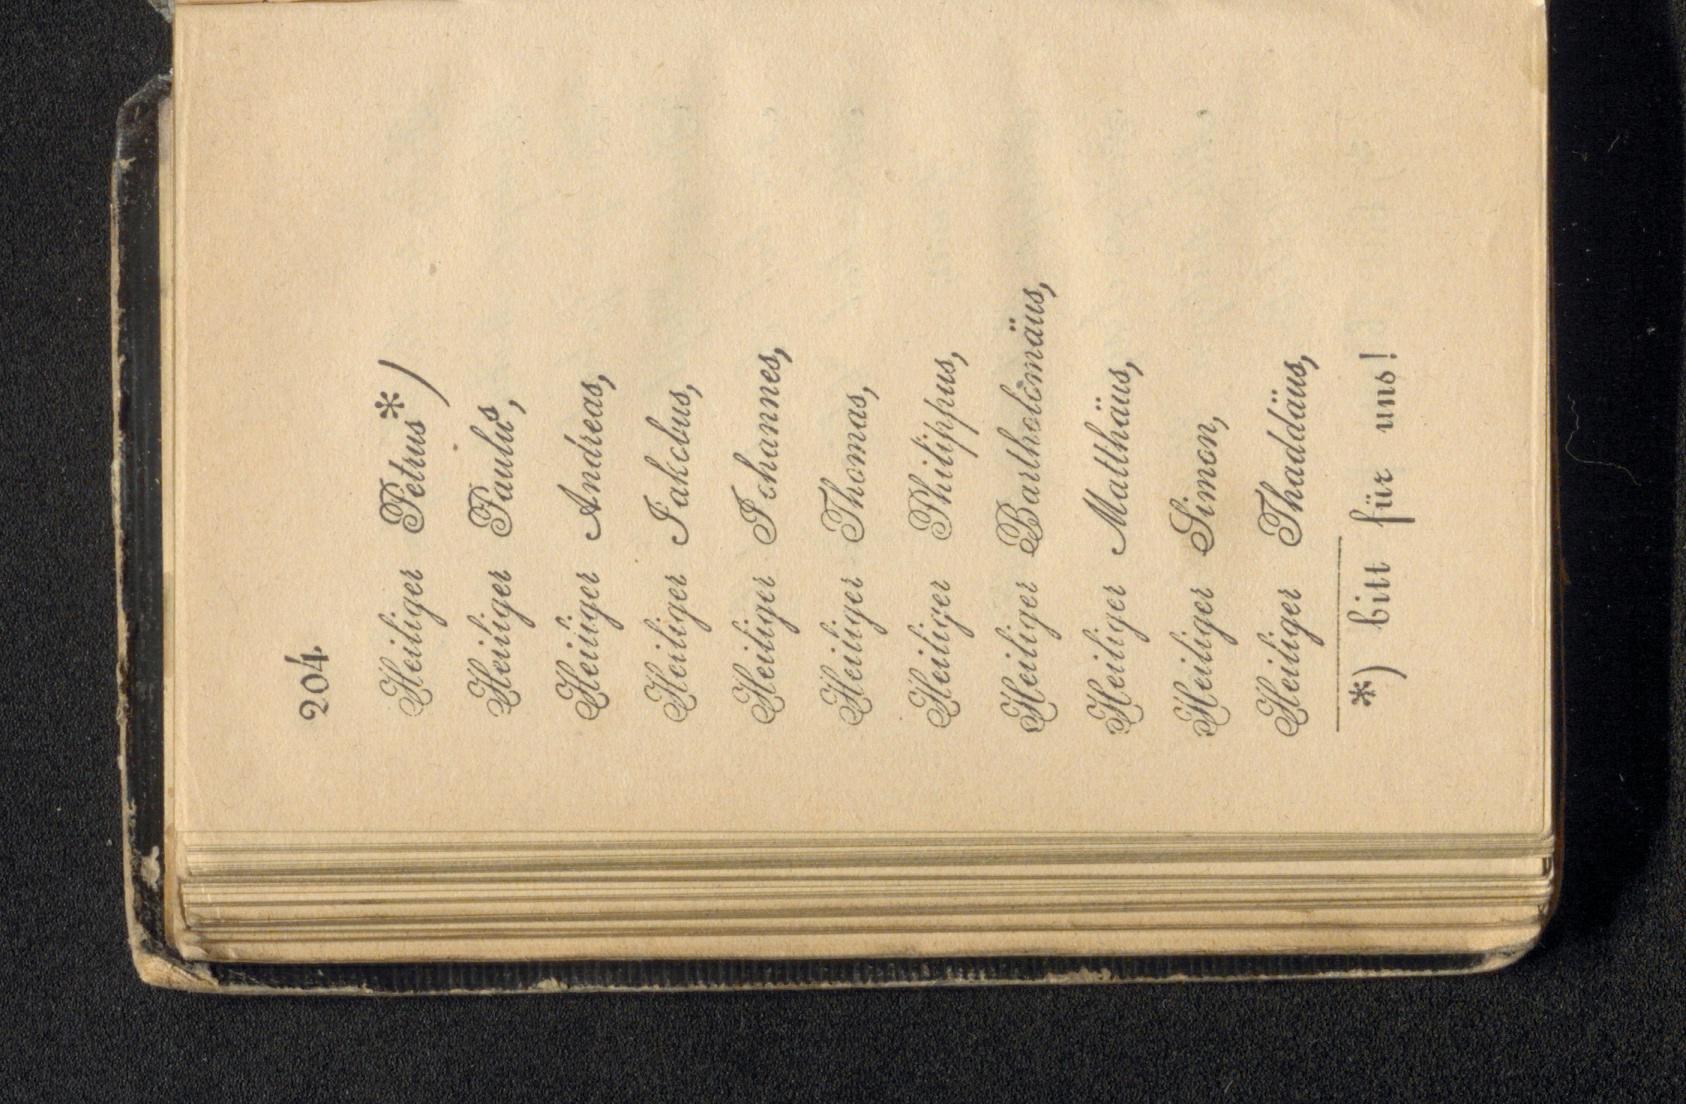 204
Heiliger Petrus*)
Heiliger Paulus,
Heiliger Andreas,
Heiliger Jakobus,
Heiliger Johannes,
Heiliger Thomas,
Heiliger Philippus,
Heiliger Bartholomäus,
Heiliger Matthäus,
Heiliger Simon,
Heiliger Thaddäus,
*) bitt für uns!